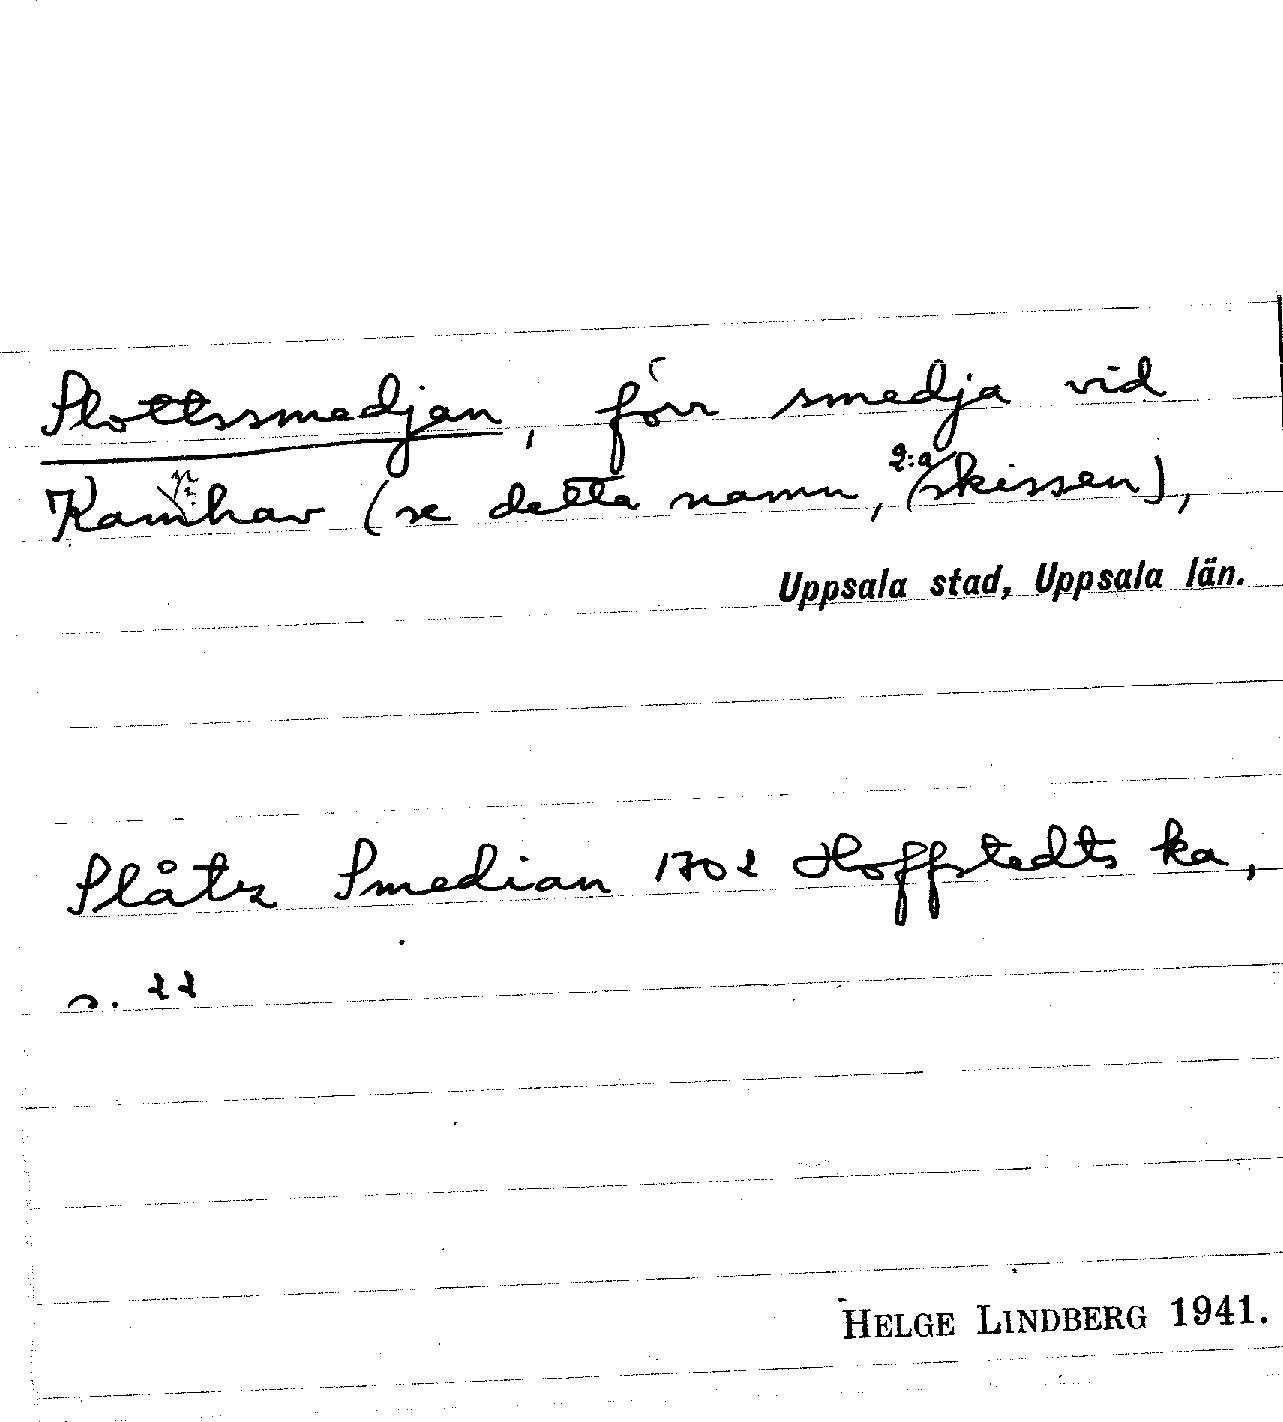 Slottssmedjan, förr smedja vid
Kamhav (se detta namn, 2:a skissen),
Uppsala stad, Uppsala län.
Slåtz Smedian 1702 Hoffstedts ka,
s. 22
HELGE LINDBERG 1941.